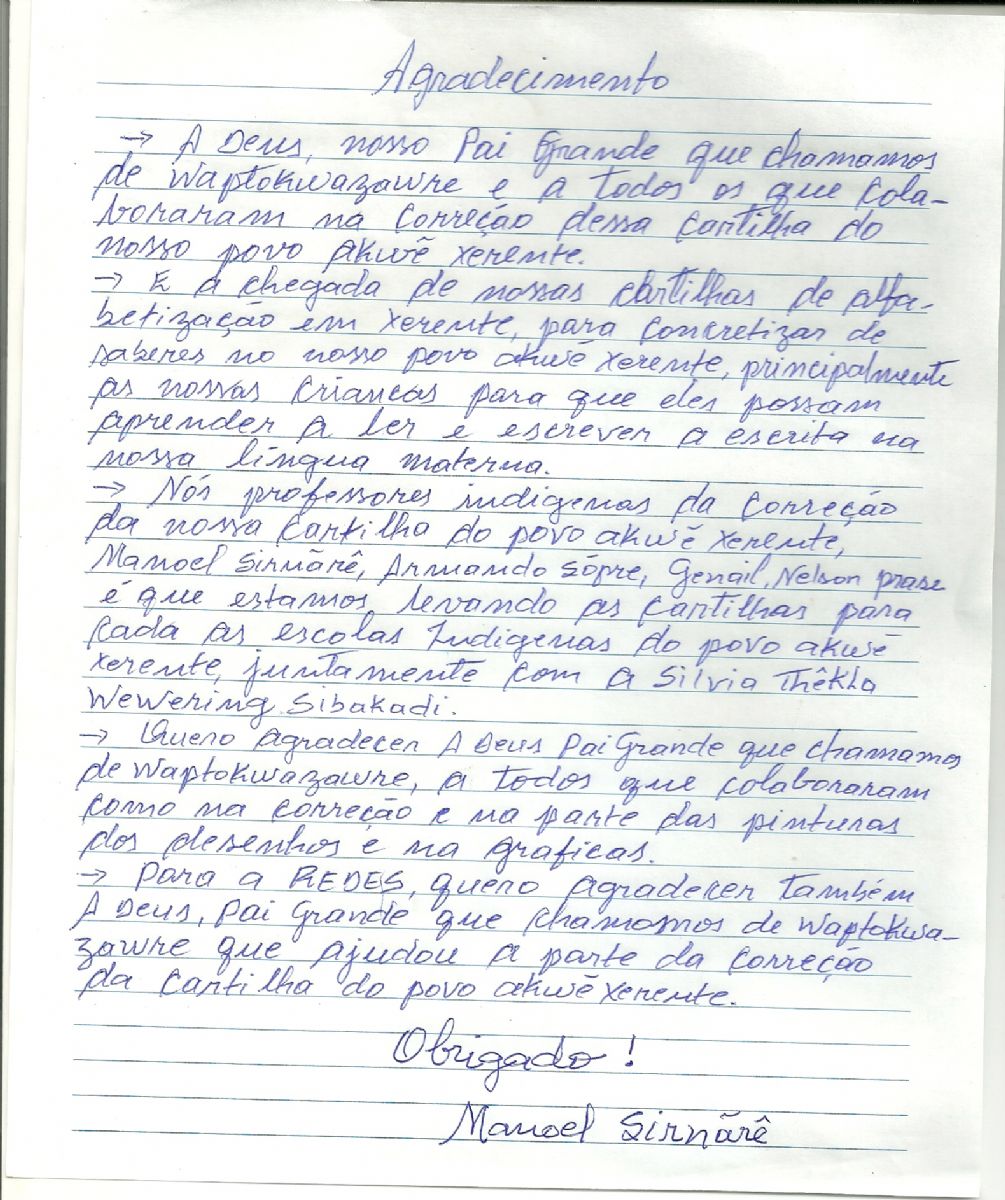 Agradecimento
→ A Deus, nosso Pai Grande que chamamos
de Waptokwazawre e a todos os que cola-
boraram na correção dessa cartilha do
nosso povo akwẽ xerente.
→ E a chegada de nossas cartilhas de alfa-
betização em xerente, para concretizar de
saberes no nosso povo akwẽ xerente, principalmente
as nossas crianças para que eles possam
aprender a ler e escrever a escrita na
nossa língua materna.
→ Nós professores indigenas da correção
da nossa cartilha do povo akwẽ xerente,
Manoel Sirnãrê, Armando Sõpre, Genail, Nelson prase
é que estamos levando as cartilhas para
cada as escolas Indigenas do povo akwẽ
xerente, juntamente com a Silvia Thêkla
Wewering Sibakadi.
→ Quero agradecer A Deus Pai Grande que chamamos
de Waptokwazawre, a todos que colaboraram
como na correção e na parte das pinturas
dos desenhos e na graficas.
→ Para a REDES, quero agradecer também
A Deus, Pai Grande que chamamos de Waptokwa-
zawre que ajudou a parte da correção
da cartilha do povo akwẽ xerente.
Obrigado !
Manoel Sirnãrê